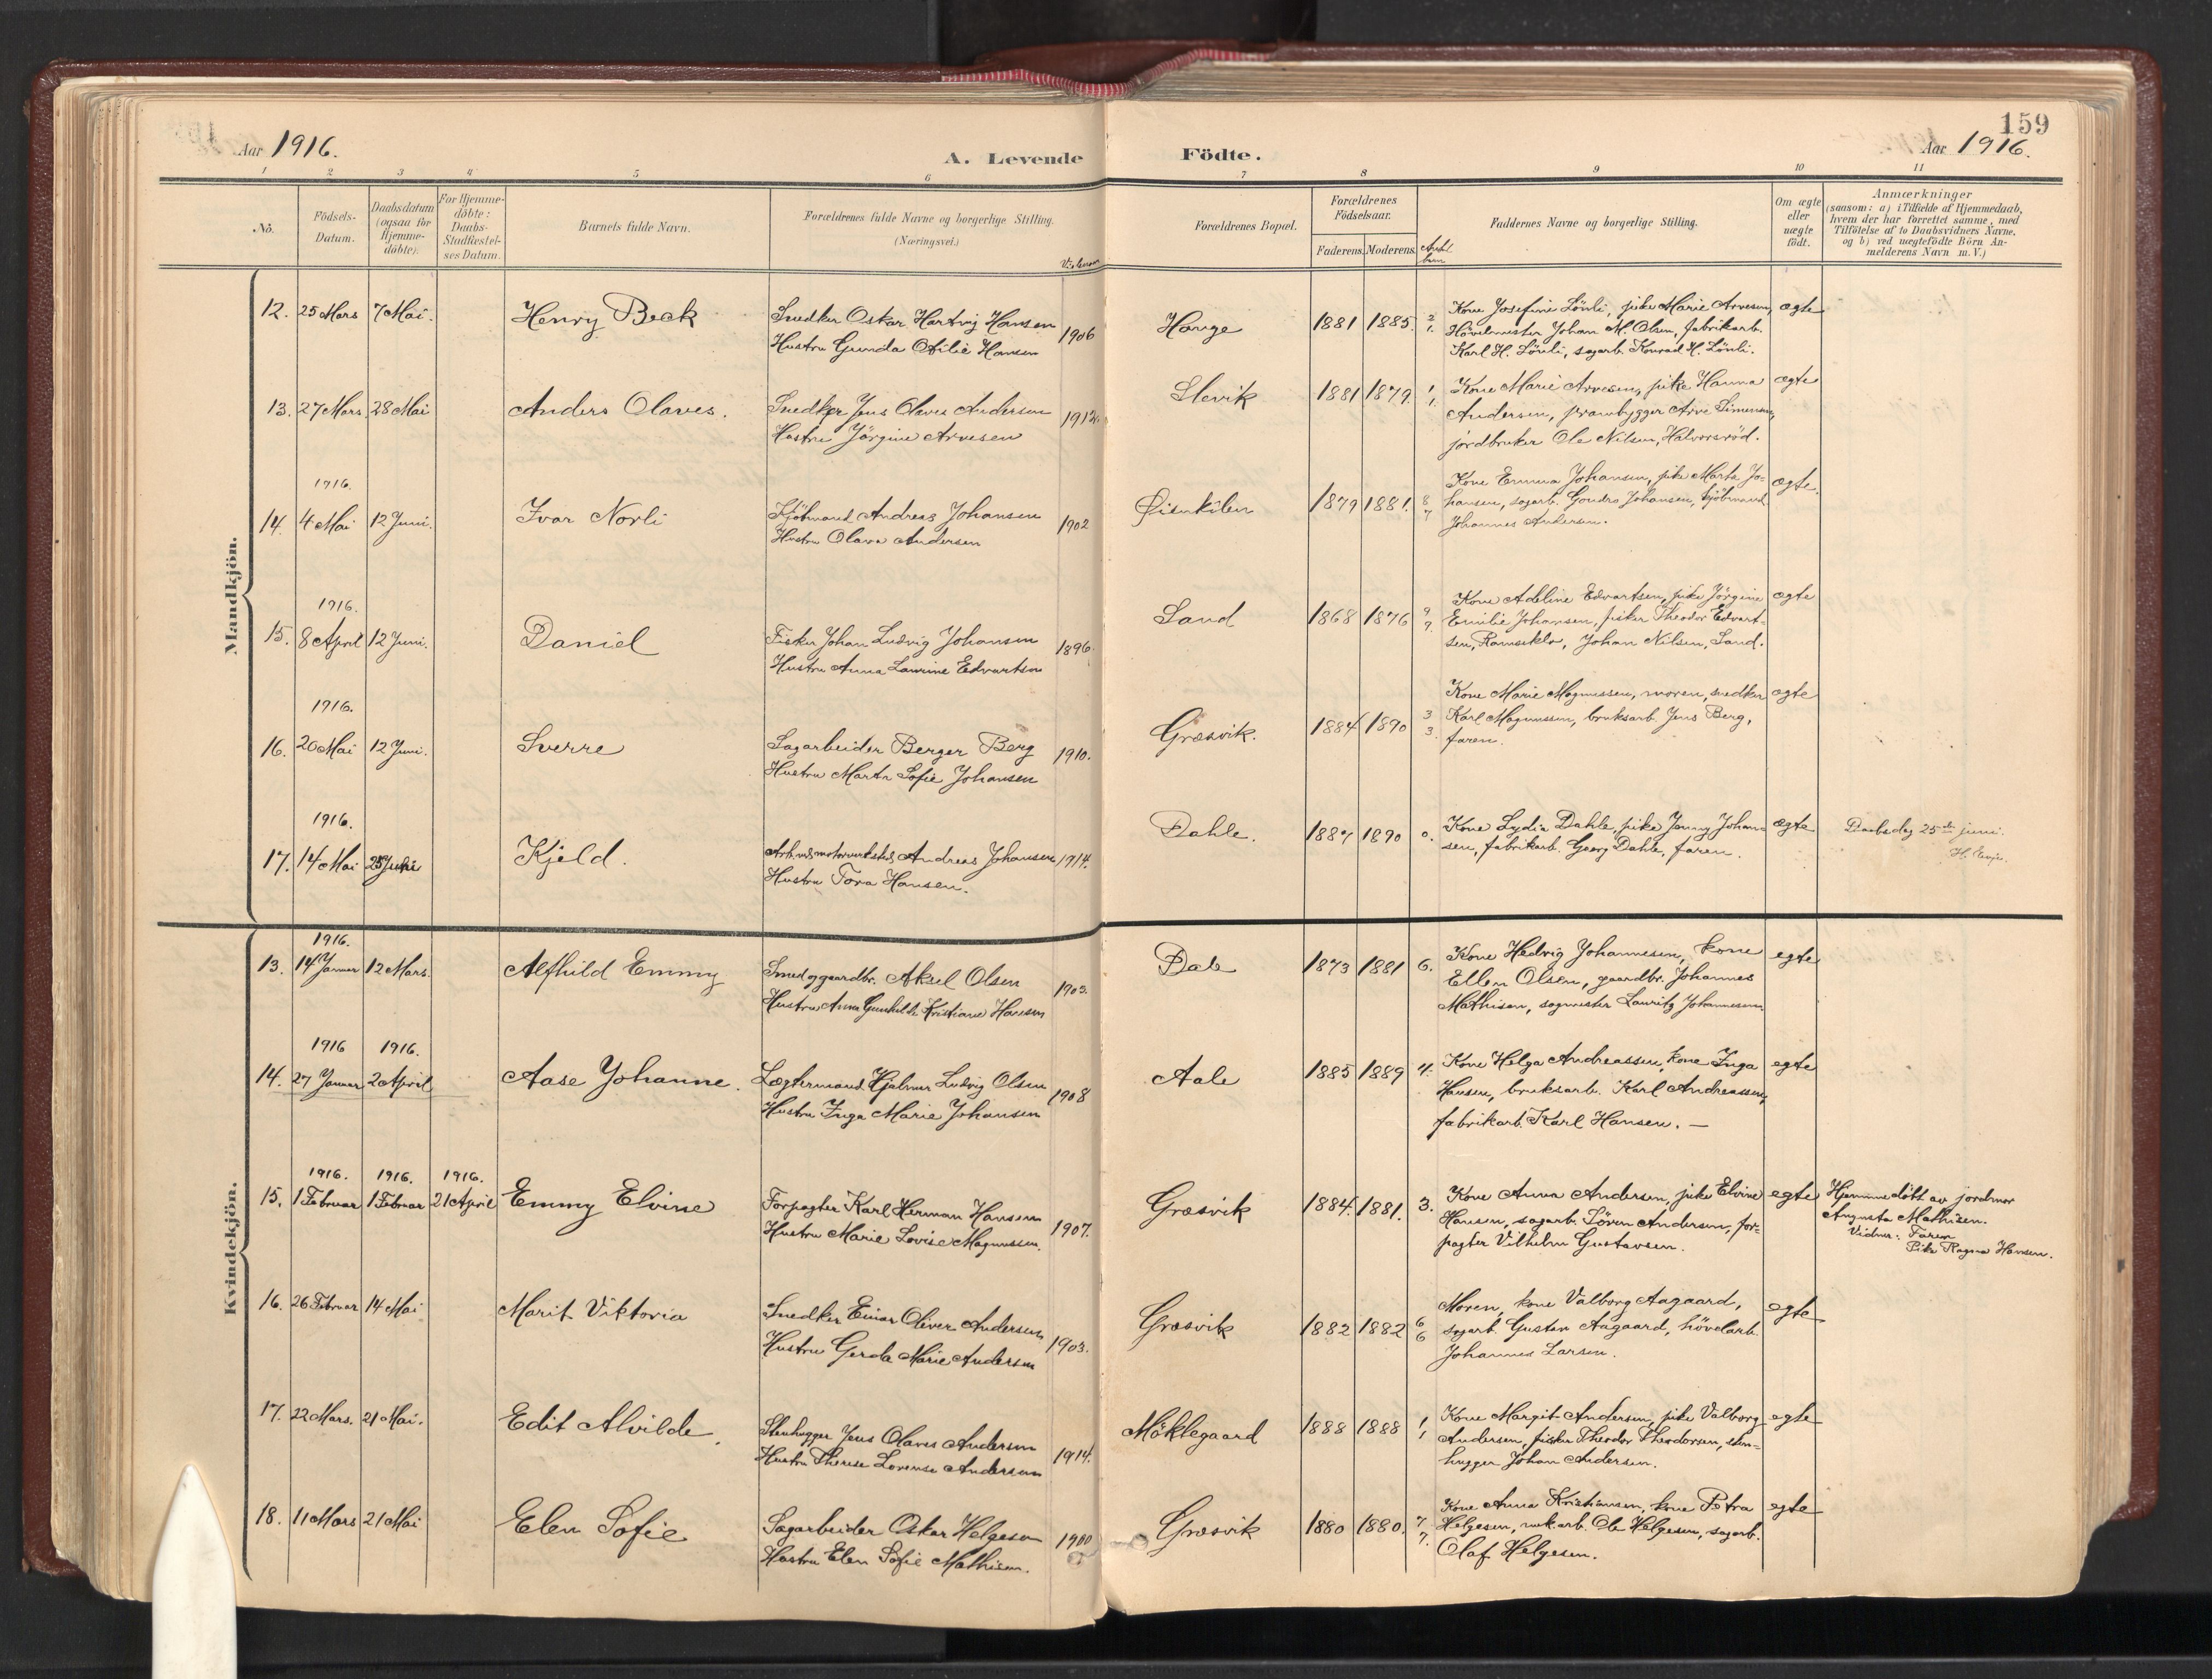 Aar 1916. A. Levende Födte. 159
Aar 1916.
1 2 3 4 5 6 7 8 9 10 11
No. Födsels-Datum. Daabsdatum (ogsaa for Hjemme-döbte). For Hjemme-döbte: Daabs-Stadfæstel-ses Datum. Barnets fulde Navn. Forældrenes fulde Navne og borgerlige Stilling. (Næringsvei.) Forældrenes Bopæl. Forældrenes Födselsaar. Faderens. Moderens. Faddernes Navne og borgerlige Stilling. Om ægte eller uægte födt. Anmærkninger (saasom: a) i Tilfælde af Hjemmedaab, hvem der har forrettet samme, med Tilföielse af to Daabsvidners Navne, og b) ved uægtefödte Börn Anmelderens Navn m. V.)
Mandkjön.
12. 25 Mars 7 Mai. Henry Beck Snedker Oskar Hartvig Hansen 1906 Hauge 1881 1885. 2 1. Kone Josefine Lönli, pike Marie Arvesen, ægte
Hustru Gunda Otilie Hansen Hövelmester Johan M. Olsen, fabrikarb.
Karl H. Lönli, sagarb. Konrad H. Lönli.
13. 27 Mars 28 Mai Anders Olaves. Snedker Jens Olaves Andersen Slevik 1881 1879. 1 1. Kone Marie Arvesen, pike Hanna ægte
Hustru Jörgine Arvesen Andersen, prambygger Arve Simensen,
jordbruker Ole Nilsen, Halvorsröd.
1916.
14. 4 Mai 12 Juni. Ivar Norli Kjöbmand Andreas Johansen 1902 Øienkilen 1879 1881. 8 7 Kone Emma Johansen, pike Marta Jo- ægte.
Hustru Olava Andersen hansen, sagarb. Johansen, kjöbmand
Johannes Andersen.
1916.
15. 8 April 12 Juni. Daniel Fisker Johan Ludvig Johansen 1896. Sand 1868 1876 9 7. Kone Adeline Edvartsen, pike Jörgine ægte
Hustru Anna Laurine Edvartsen Emilie Johansen, fisker Theodor Edvart-
sen, Ramseklov, Johan Nilsen, Sand.
1916.
16. 20 Mai 12 Juni. Sverre Sagarbeider Berger Berg 1910. Græsvik. 1884 1890 3 3. Kone Marie Magnussen, moren, snedker ægte
Hustru Marta Sofie Johansen Karl Magnussen, bruksarb. Jens Berg,
faren.
1916.
17. 14 Mai 25 Juni Kjeld. Arb. ved motorverksted, Andreas Johansen 1914. Dahle. 1887 1890 0. Kone Lydia Dahle, pike Jenny Johan- ægte Daabsdag 25de juni.
Hustru Tora Hansen. sen, fabrikarb. Georg Dahle, faren.
Kvindekjön.
1916.
13. 14 Januar 12 Mars. Alfhild Emmy Smed og gaardbr. Aksel Olsen 1903. Dale 1873 1881 6. Kone Hedvig Johannesen, kone egte
Hustru Anna Gunhilde Kristiane Hansen Ellen Olsen, gaardbr. Johannes
Mathisen, sagmester Lauritz Johannesen
1916 1916.
14. 27 Januar 2 April Aase Johanne. Lægtermand Hjalmar Ludvig Olsen 1908 Aale 1885 1889 4. Kone Helga Andreassen, kone Inga egte
Hustru Inga Marie Johansen Hansen, bruksarb. Karl Andreassen,
fabrikarb. Karl Hansen. —
1916. 1916. 1916.
15. 1 Februar 1 Februar 21 April Emmy Elvine Forpagter Karl Herman Hansen 1907. Græsvik 1884. 1881. 3. Kone Anna Andersen, pike Elvine egte Hjemmedöbt av jordmor
Hustru Marie Lovise Magnussen. Hansen, sagarb. Sören Andersen, for- Augusta Mathisen.
pagter Vilhelm Gustavsen. Vidner: Faren
Pike Ragna Hansen.
16. 26 Februar 14 Mai Marit Viktoria Snedker Einar Oliver Andersen 1903. Græsvik 1882 1882 6 6 Moren, kone Valborg Aagaard, egte
Hustru Gerda Marie Andersen sagarb. Gustav Aagaard, hövelarb.
Johannes Larsen.
17. 22 Mars. 21 Mai. Edit Alvilde. Stenhugger Jens Olaves Andersen 1914. Möklegaard 1888 1888 1 1 Kone Margit Andersen, pike Valborg egte
Hustru Therese Lovense Andersen Andersen, fisker Theodor Theodorsen, sten-
hugger Johan Andersen.
18. 11 Mars 21 Mai Elen Sofie Sagarbeider Oskar Helgesen 1900 Græsvik 1880 1880. 7 7. Kone Anna Kristiansen, kone Petra egte
Hustru Elen Sofie Mathisen. Helgesen, Ole Helgesen, sagarb.
Olaf Helgesen.